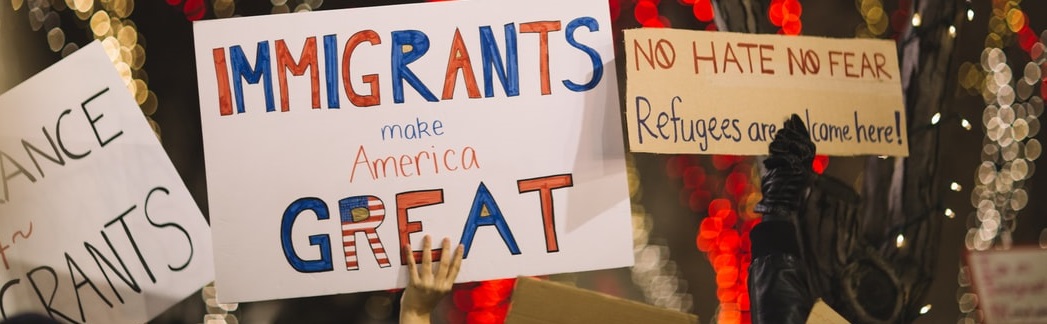 ANCE
GRANTS
IMMIGRANTS
make
America
GREAT
NO HATE NO FEAR
Refugees are lcome here!